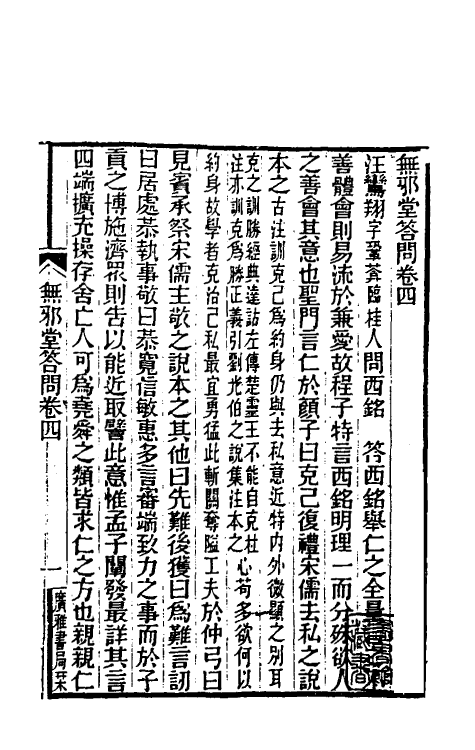 無邪堂答問卷四
汪鸞翔字鞏葊臨桂人問西銘　答西銘舉仁之全量
善體會則易流於兼愛故程子特言西銘明理一而分殊欲人
之善會其意也聖門言仁於顏子曰克己復禮宋儒去私之說
本之古注訓克己爲約身仍與去私意近特內外微顯之別耳
克之訓勝經典達詁左傳楚靈王不能自克杜
注亦訓克爲勝正義引劉光伯之說集注本之
心苟多欲何以
約身故學者克治己私最宜勇猛此斬關奪隘工夫於仲弓曰
見賓承祭宋儒主敬之說本之其他曰先難後獲曰爲難言訒
曰居處恭執事敬曰恭寬信敏惠多言審端致力之事而於子
貢之博施濟眾則告以能近取譬此意惟孟子闡發最詳其言
四端擴充操存舍亡人可爲堯舜之類皆求仁之方也親親仁
無邪堂答問卷四
一
廣雅書局栞